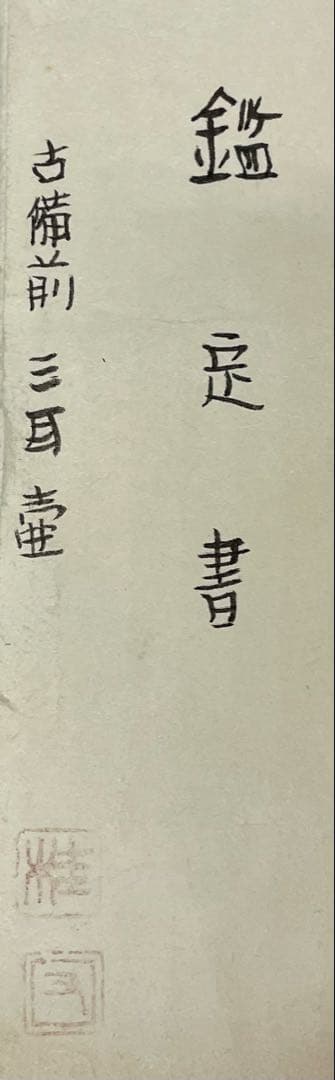 鑑定書
古備前 三耳壷
桂